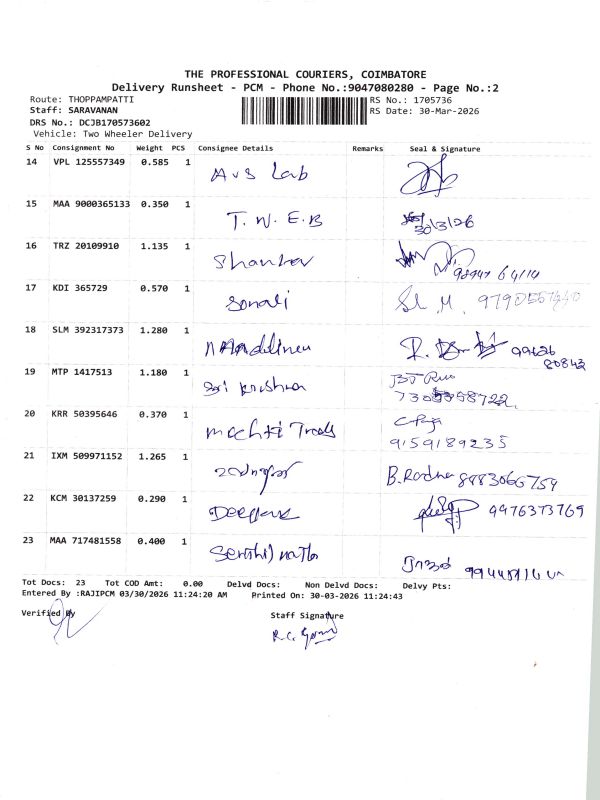 THE PROFESSIONAL COURIERS, COIMBATORE
Delivery Runsheet - PCM - Phone No.:9047080280 - Page No.:2
Route: THOPPAMPATTI RS No.: 1705736
Staff: SARAVANAN RS Date: 30-Mar-2026
DRS No.: DCJB170573602
Vehicle: Two Wheeler Delivery
S No Consignment No Weight PCS Consignee Details Remarks Seal & Signature
14 VPL 125557349 0.585 1 AVS Lab
15 MAA 9000365133 0.350 1 T.N.E.B 30/3/26
16 TRZ 20109910 1.135 1 Shankar
17 KDI 365729 0.570 1 Sonali
18 SLM 392317373 1.280 1 99626
80843
19 MTP 1417513 1.180 1 Sri Krishna
20 KRR 50395646 0.370 1 9159189235
21 IXM 509971152 1.265 1 B.Radha 8883066759
22 KCM 30137259 0.290 1 Deepak 9976373769
23 MAA 717481558 0.400 1 Senthil nathan
Tot Docs: 23 Tot COD Amt: 0.00 Delvd Docs: Non Delvd Docs: Delvy Pts:
Entered By :RAJIPCM 03/30/2026 11:24:20 AM Printed On: 30-03-2026 11:24:43
Verified By Staff Signature